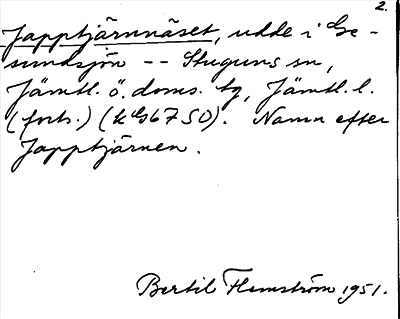 2.
Japptjärnnäset, udde i Ge-
sundsjön -- Stuguns sn,
Jämtl. ö. doms. tg, Jämtl. l.
(forts.) (kG6750). Namn efter
Japptjärnen.
Bertil Flemström 1951.